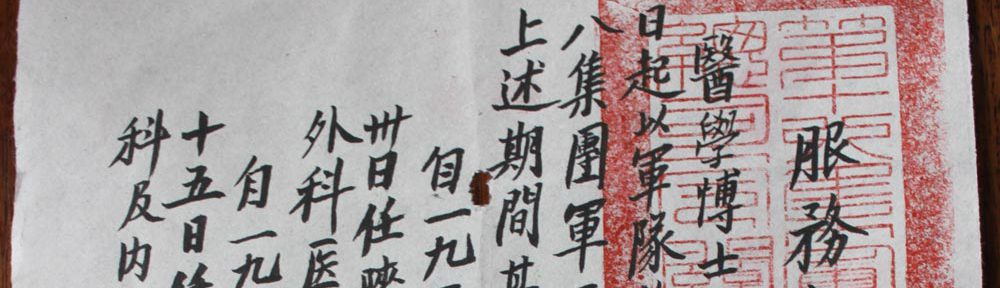 服務
醫學博士
日起以軍隊
八集團軍
上述期間其
自一九
卅日任陝
外科医
自一九
十五日
科及内